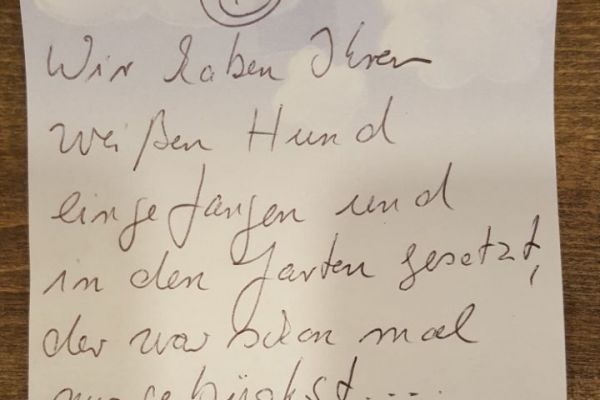 Wir haben Ihren
weißen Hund
eingefangen und
in den Garten gesetzt,
der war schon mal
ausgebüchst....